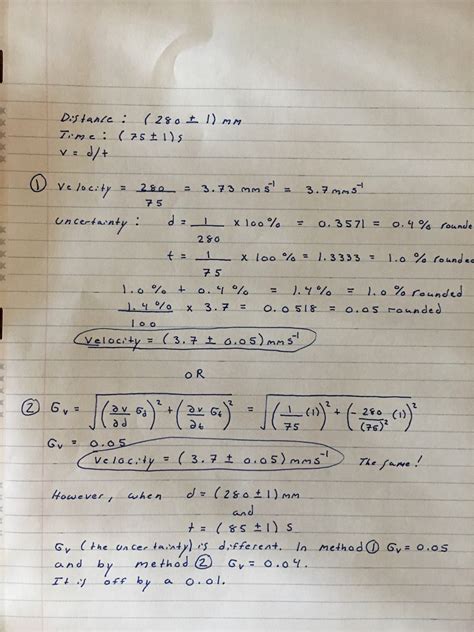 Distance : (280 ± 1) mm
Time : (75 ± 1) s
v = d/t
① Velocity = 280/75 = 3.73 mms⁻¹ = 3.7 mms⁻¹
Uncertainty : d = 1/280 x 100 % = 0.3571 = 0.4 % rounded
t = 1/75 x 100 % = 1.3333 = 1.0 % rounded
1.0 % + 0.4 % = 1.4 % = 1.0 % rounded
1.4 %/100 x 3.7 = 0.0518 = 0.05 rounded
Velocity = (3.7 ± 0.05) mms⁻¹
OR
② Gᵥ = √((∂v/∂d G_d)² + (∂v/∂t G_t)²) = √((1/75 (1))² + (- 280/(75)² (1))²)
Gᵥ = 0.05
Velocity = (3.7 ± 0.05) mms⁻¹ The same!
However, when d = (280 ± 1) mm
and
t = (85 ± 1) s
Gᵥ (the uncertainty) is different. In method ① Gᵥ = 0.05
and by method ② Gᵥ = 0.04.
It is off by a 0.01.